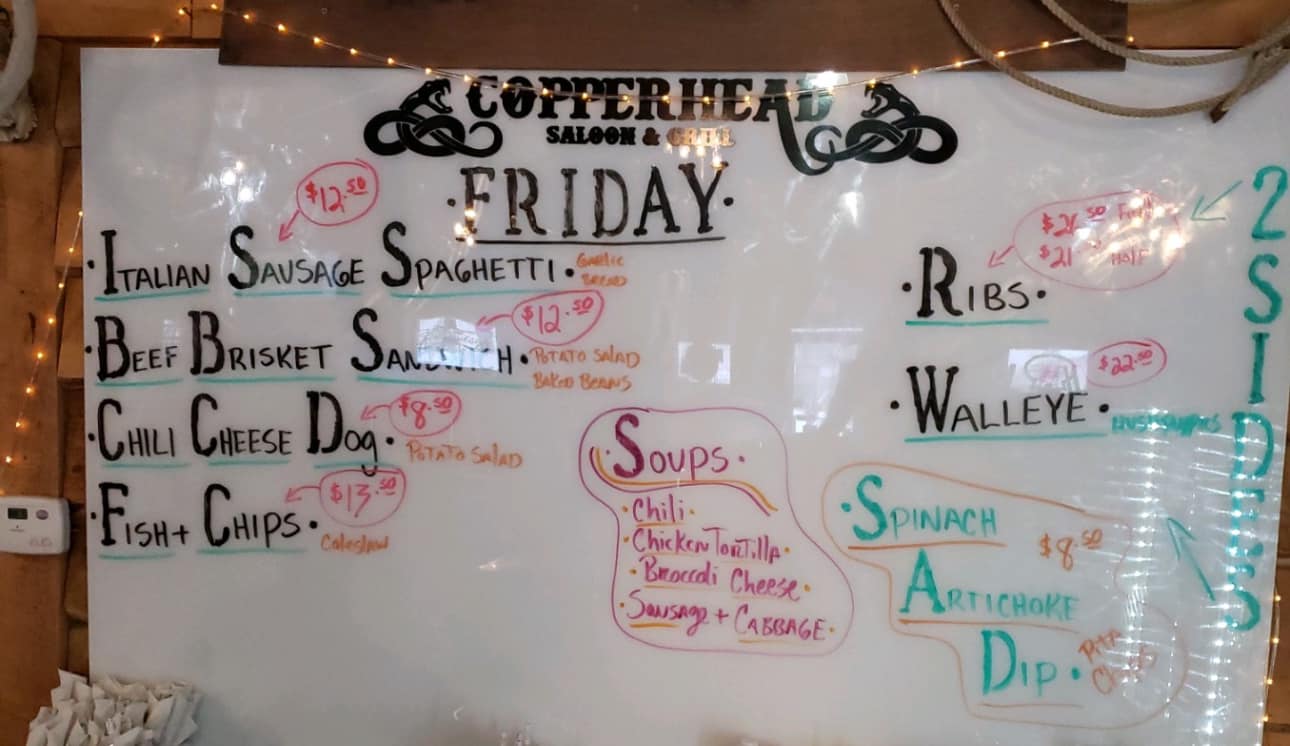 COPPERHEAD
SALOON & GRILL
·FRIDAY·
$12.50
·ITALIAN SAUSAGE SPAGHETTI·
GARLIC
BREAD
$12.50
·BEEF BRISKET SANDWICH·
POTATO SALAD
BAKED BEANS
$8.50
·CHILI CHEESE DOG·
POTATO SALAD
$13.50
·FISH + CHIPS·
Coleslaw
·SOUPS·
·Chili·
·Chicken Tortilla·
·Broccoli Cheese·
·Sausage + CABBAGE·
Full
$21 HALF
·RIBS·
$22.50
·WALLEYE·
HUSHPUPPIES
2 SIDES
·SPINACH
$8.50
ARTICHOKE
DIP·
PITA
Chips